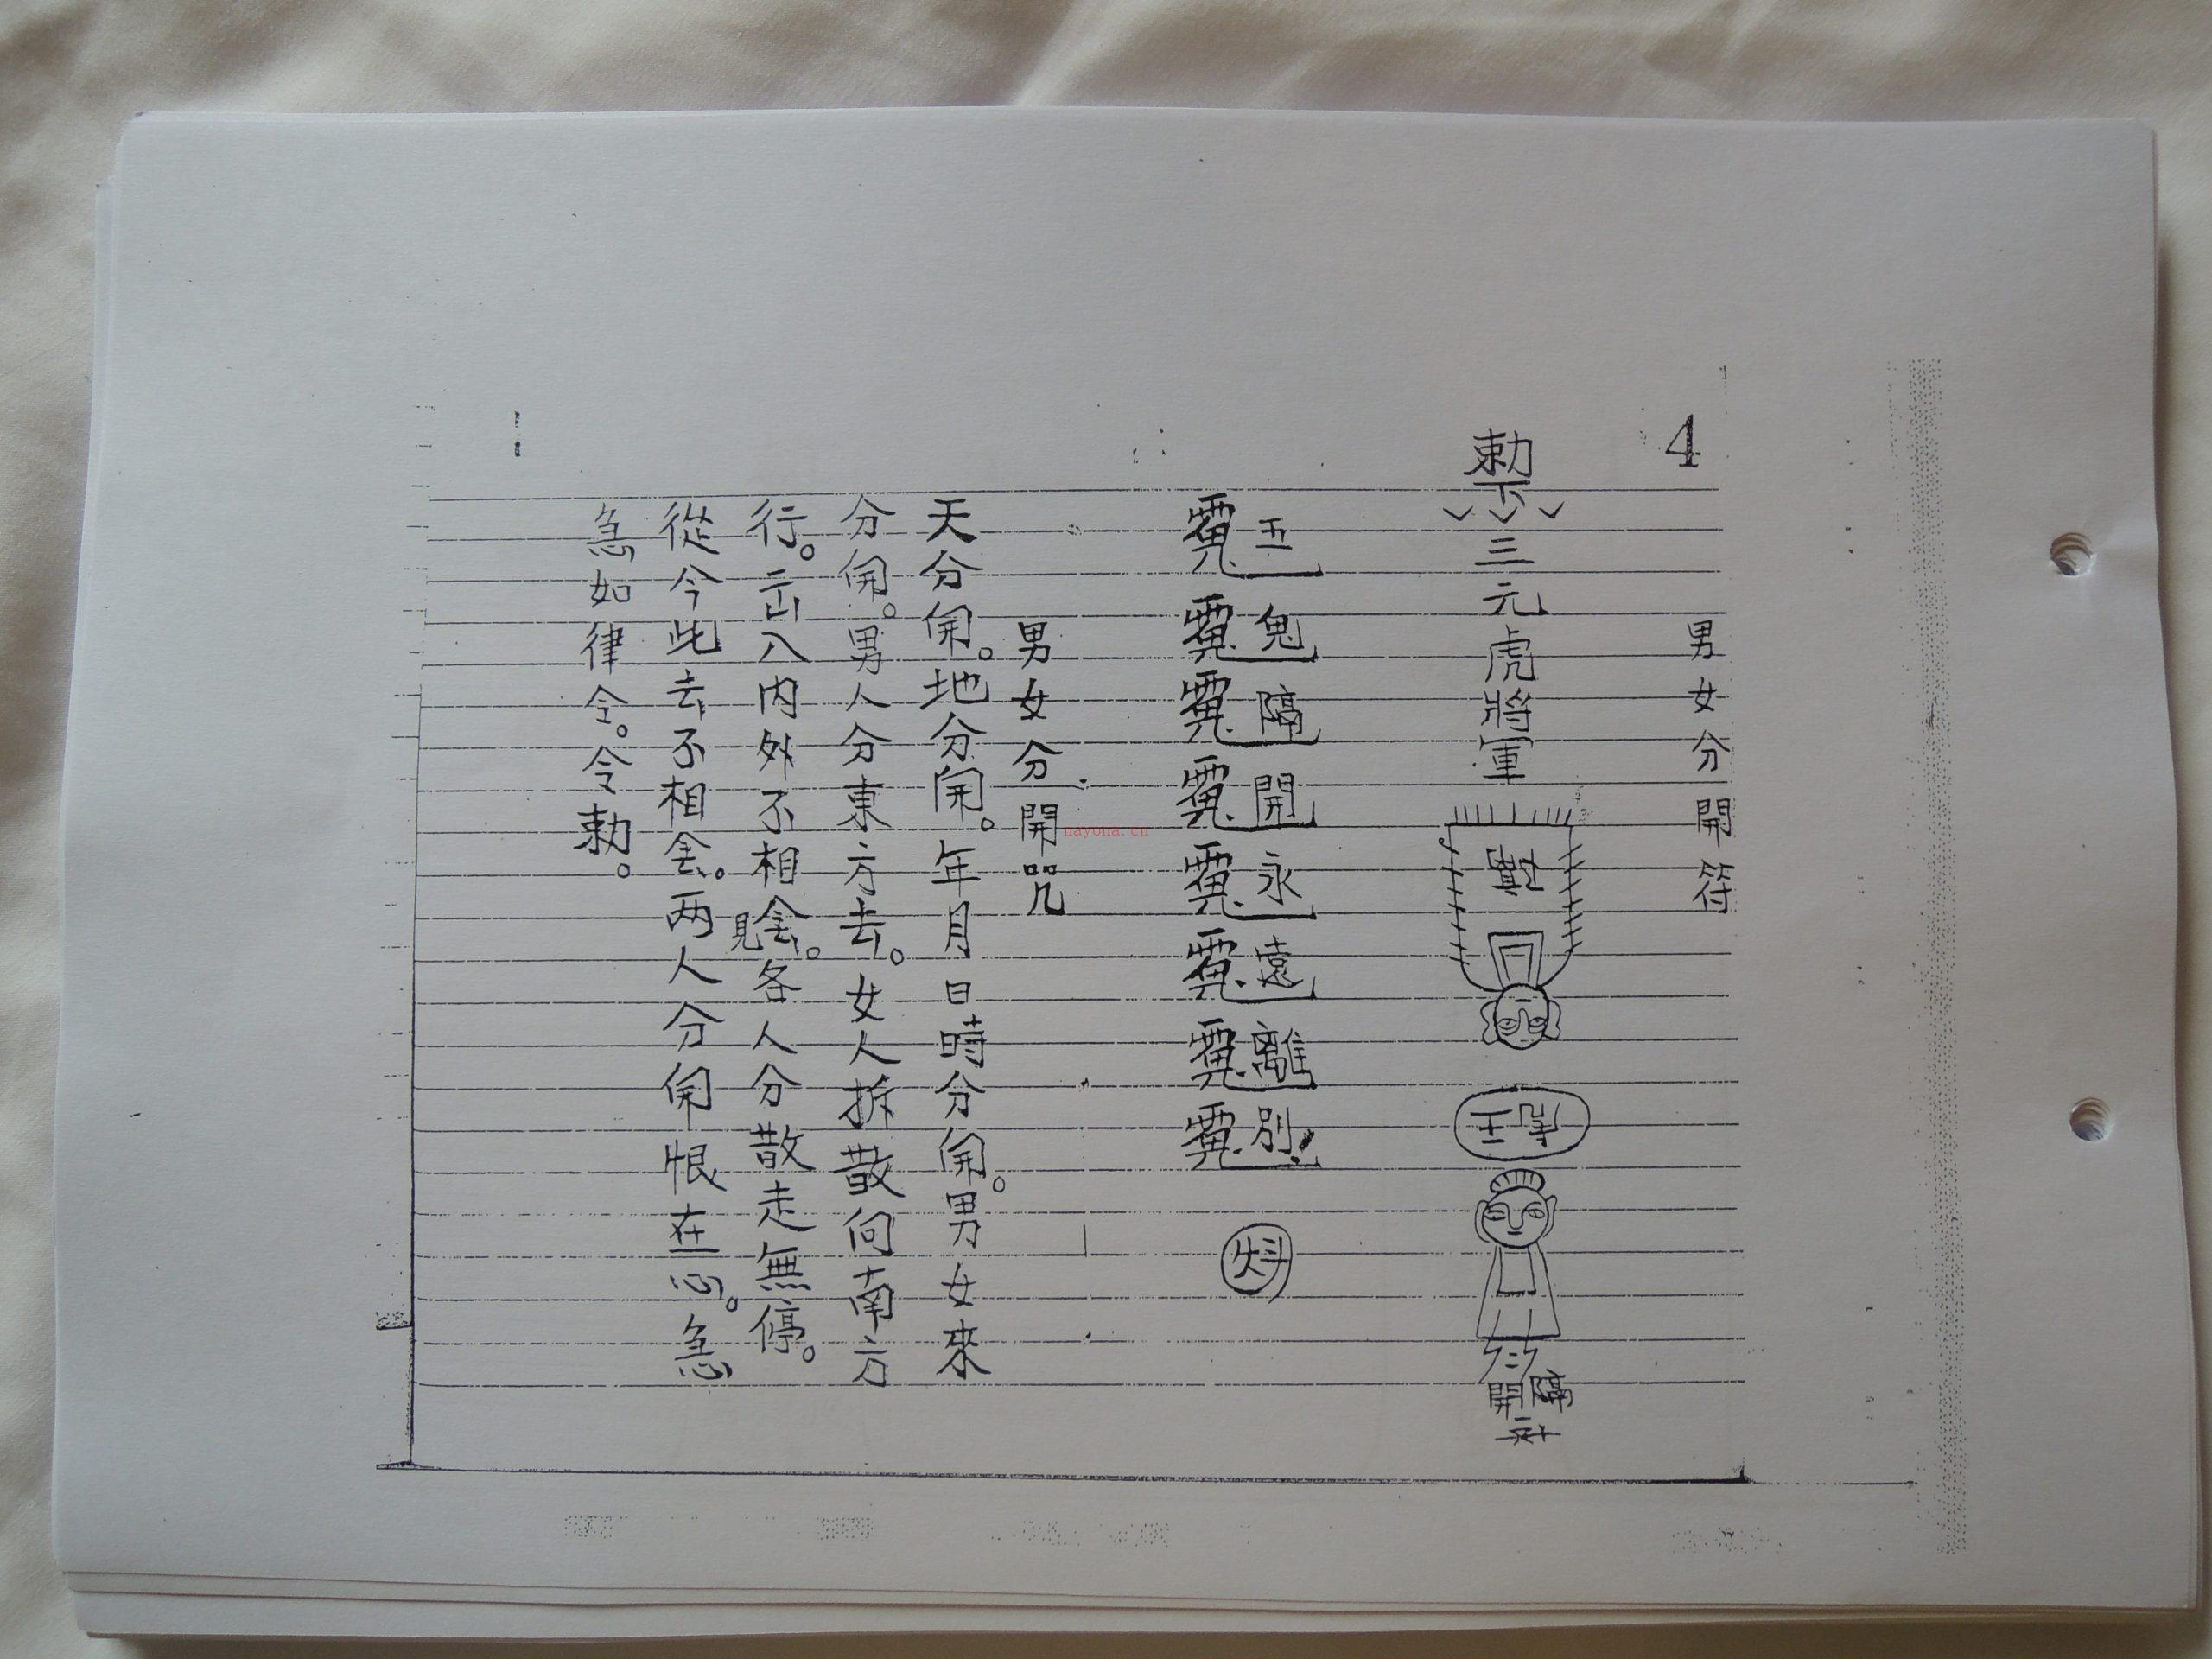 4
男女分開符
勅下三元虎將軍
王
隔
開
五鬼隔開永遠離別
男女分開咒
天分開。地分開。年月日時分開。男女來
分開。男人分東方去。女人拆散向南方
行。出入內外不相會。各人分散走無停。
見
從今此去不相會。两人分開恨在心。急
急如律令。令勅。
nayona.cn